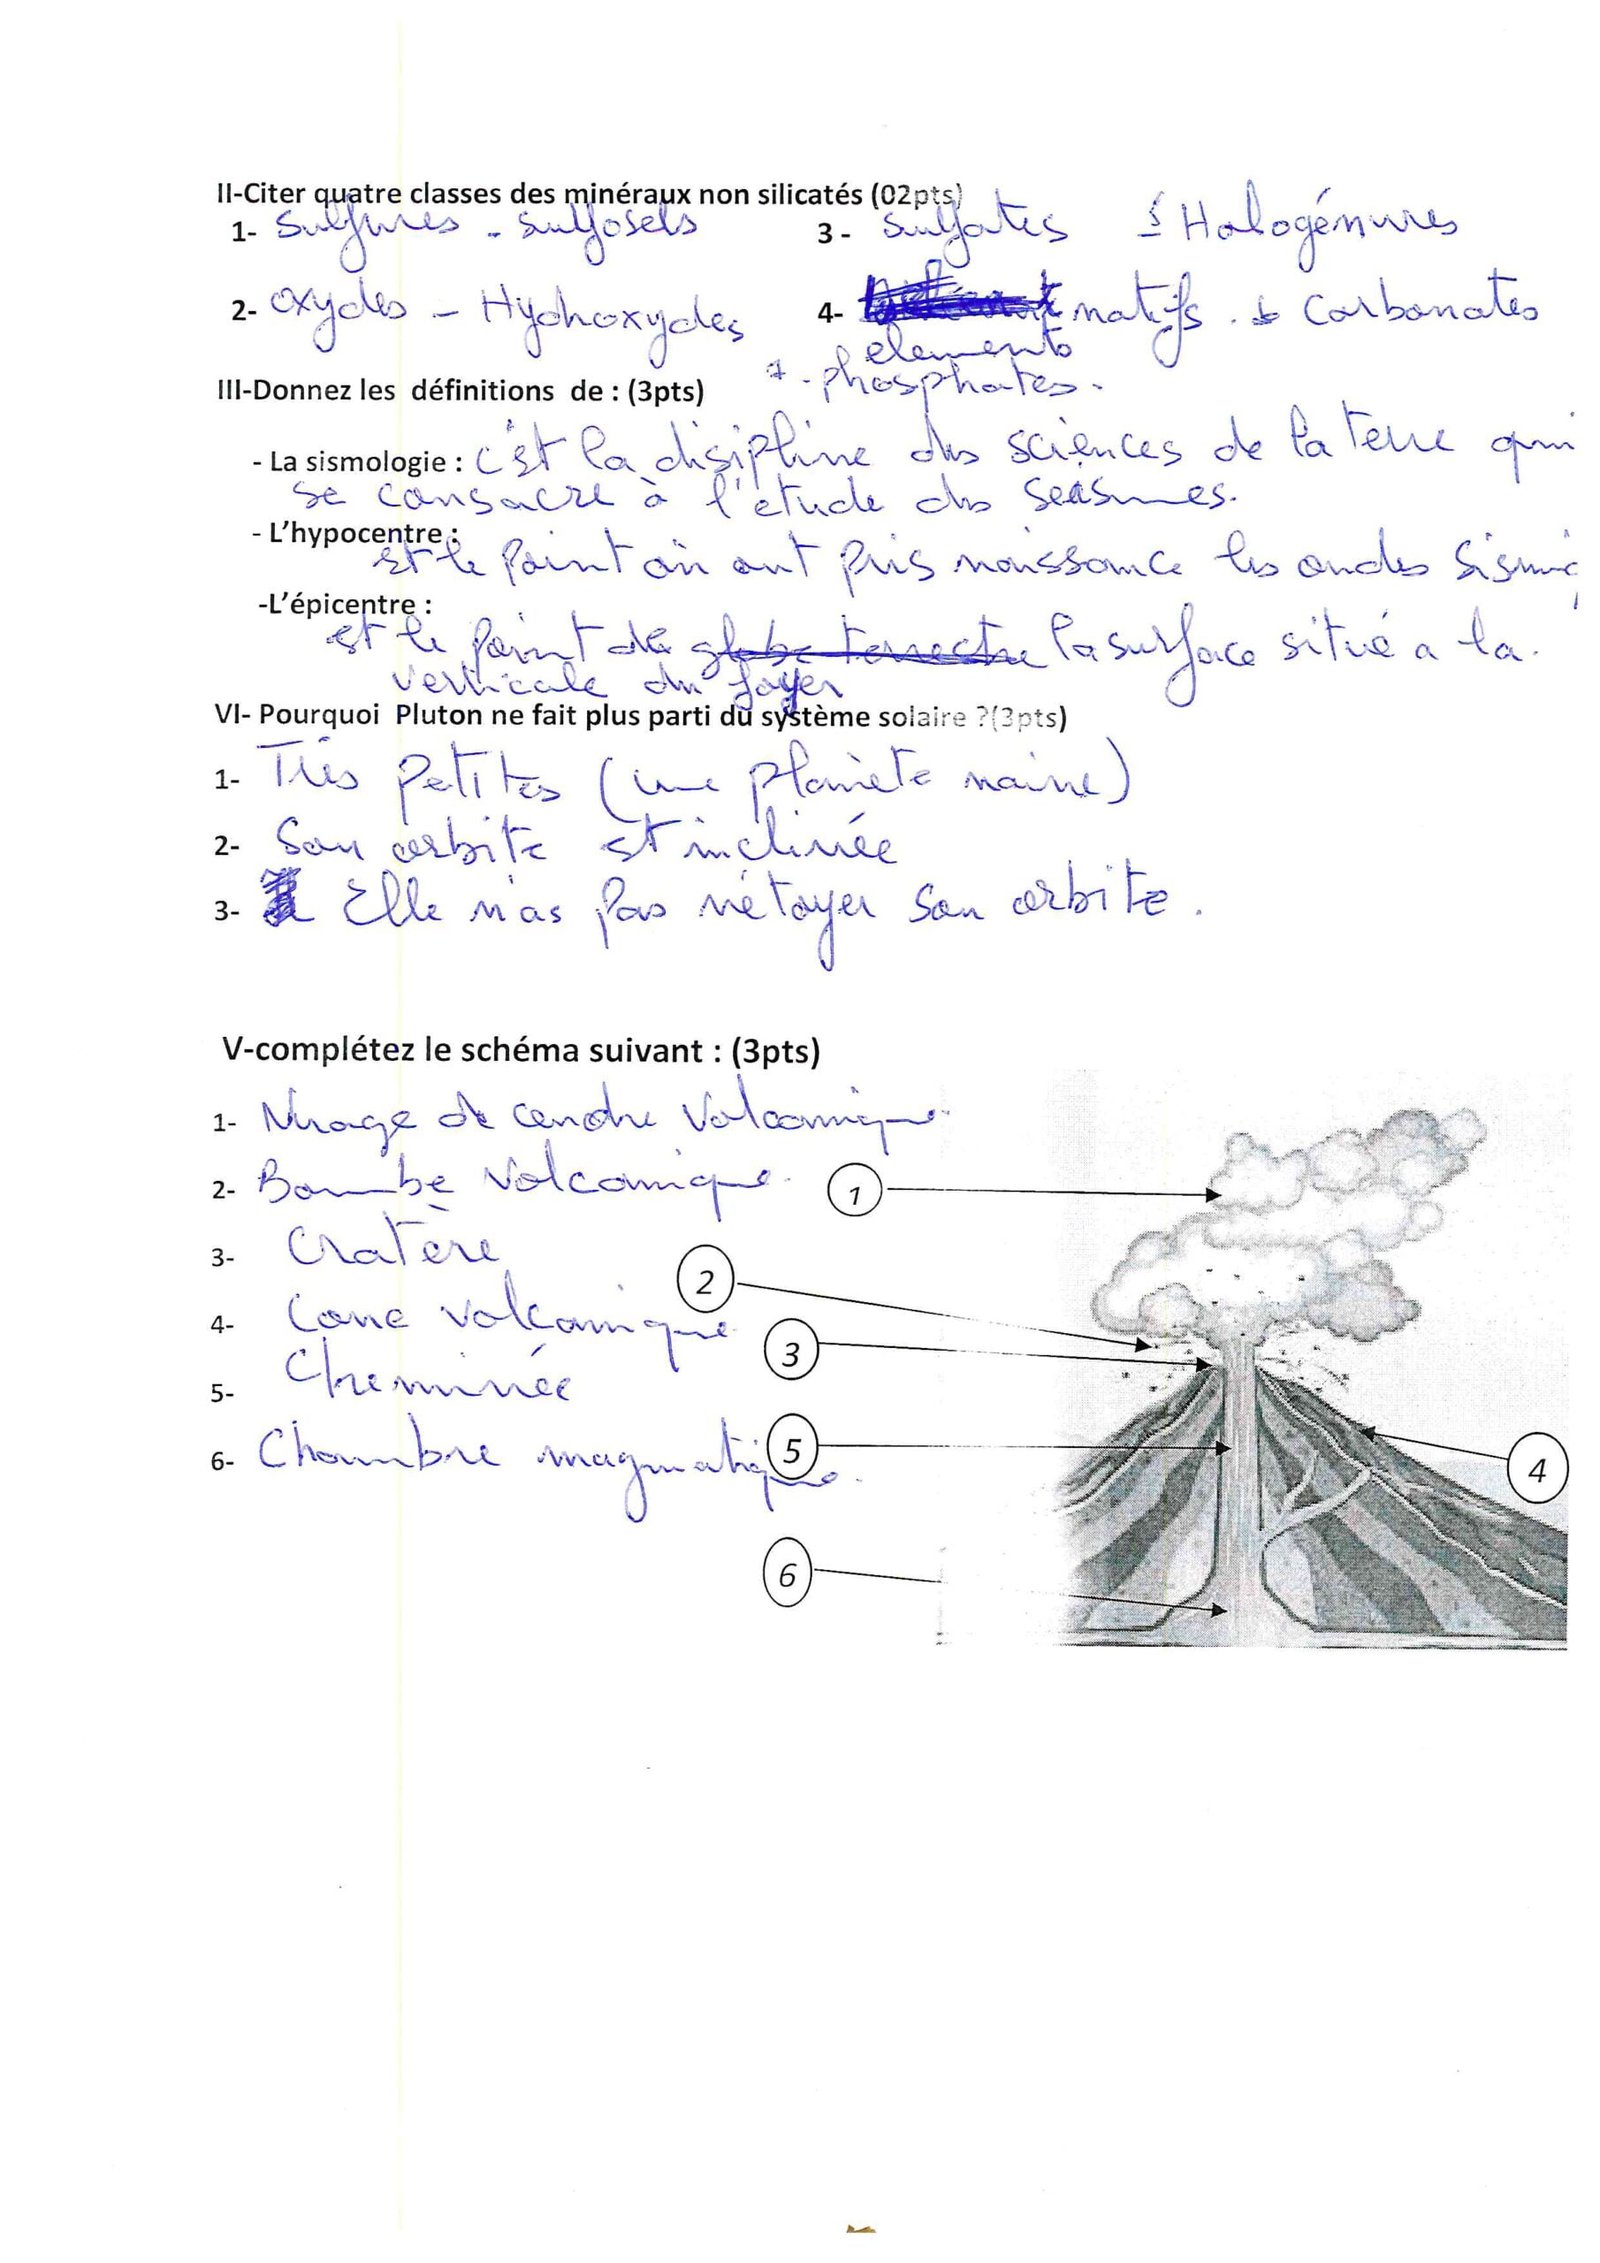 II-Citer quatre classes des minéraux non silicatés (02pts)
1- Sulfures - Sulfosels 3 - Sulfates 5 Halogénures
2- oxydes - Hydroxydes 4- natifs . 6 Carbonates
elements
7 - phosphates.
III-Donnez les définitions de : (3pts)
- La sismologie : c'est la disipline des sciences de la terre qui
se consacre à l'étude des seismes.
- L'hypocentre :
est le point où ont pris naissance les ondes sismi
-L'épicentre :
est le point de globe terrestre la surface situé a la
verticale du foyer
VI- Pourquoi Pluton ne fait plus parti du système solaire ?(3pts)
1- Très petites (une planète naine)
2- Son orbite est inclinée
3- Elle n'as pas nétoyer son orbite.
V-complétez le schéma suivant : (3pts)
1- Nuage de cendre Volcanique.
2- Bombe Volcanique.
3- Cratère
4- Cone volcanique
5- Cheminée
6- Chambre magmatique.
1
2
3
5
4
6